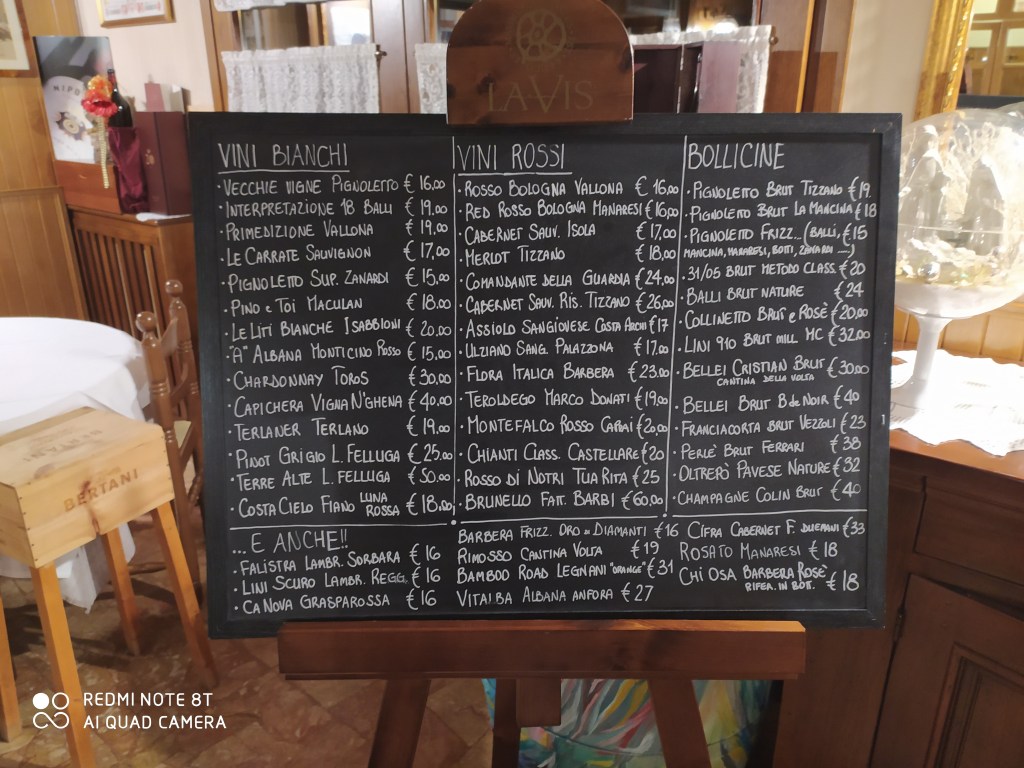 LAVIS
VINI BIANCHI
• VECCHIE VIGNE PIGNOLETTO € 16,00
• INTERPRETAZIONE 18 BALLI € 19,00
• PRIMEDIZIONE VALLONA € 19,00
• LE CARRATE SAUVIGNON € 17,00
• PIGNOLETTO SUP. ZANARDI € 15,00
• PINO e TOI MACULAN € 18,00
• LE LITI BIANCHE ISABBIONI € 20,00
• "A" ALBANA MONTICINO ROSSO € 15,00
• CHARDONNAY TOROS € 30,00
• CAPICHERA VIGNA N'GHENA € 40,00
• TERLANER TERLANO € 19,00
• PINOT GRIGIO L. FELLUGA € 25,00
• TERRE ALTE L. FELLUGA € 50,00
• COSTA CIELO FIANO LUNA ROSSA € 18,00
VINI ROSSI
• ROSSO BOLOGNA VALLONA € 16,00
• RED ROSSO BOLOGNA MANARESI € 16,00
• CABERNET SAUV. ISOLA € 17,00
• MERLOT TIZZANO € 18,00
• COMANDANTE DELLA GUARDIA € 24,00
• CABERNET SAUV. RIS. TIZZANO € 26,00
• ASSIOLO SANGIOVESE COSTA ARCHI € 17
• ULZIANO SANG. PALAZZONA € 17,00
• FLORA ITALICA BARBERA € 23,00
• TEROLDEGO MARCO DONATI € 19,00
• MONTEFALCO ROSSO CAPRAI € 20,00
• CHIANTI CLASS. CASTELLARE € 20
• ROSSO DI NOTRI TUA RITA € 25
• BRUNELLO FATT. BARBI € 60,00
BOLLICINE
• PIGNOLETTO BRUT TIZZANO € 19
• PIGNOLETTO BRUT LA MANCINA € 18
• PIGNOLETTO FRIZZ.. (BALLI, € 15
MANCINA, MANARESI, BOTTI, ZANARDI ...)
• 31/05 BRUT METODO CLASS. € 20
• BALLI BRUT NATURE € 24
• COLLINETTO BRUT e ROSÈ € 20,00
• LINI 910 BRUT MILL MC € 32,00
• BELLEI CRISTIAN BRUT € 30,00
CANTINA DELLA VOLTA
• BELLEI BRUT B de NOIR € 40
• FRANCIACORTA BRUT VEZZOLI € 23
• PERLÈ BRUT FERRARI € 38
• OLTREPÒ PAVESE NATURE € 32
• CHAMPAGNE COLIN BRUT € 40
... E ANCHE!!
• FALISTRA LAMBR. SORBARA € 16
• LINI SCURO LAMBR. REGG. € 16
• CA NOVA GRASPAROSSA € 16
BARBERA FRIZZ. ORO di DIAMANTI € 16
RIMOSSO CANTINA VOLTA € 19
BAMBOO ROAD LEGNANI "ORANGE" € 31
VITALBA ALBANA ANFORA € 27
CIFRA CABERNET F. DUEMANI € 33
ROSATO MANARESI € 18
CHI OSA BARBERA ROSÈ € 18
RIFER. IN BOTT.
BERTANI
REDMI NOTE 8T
AI QUAD CAMERA